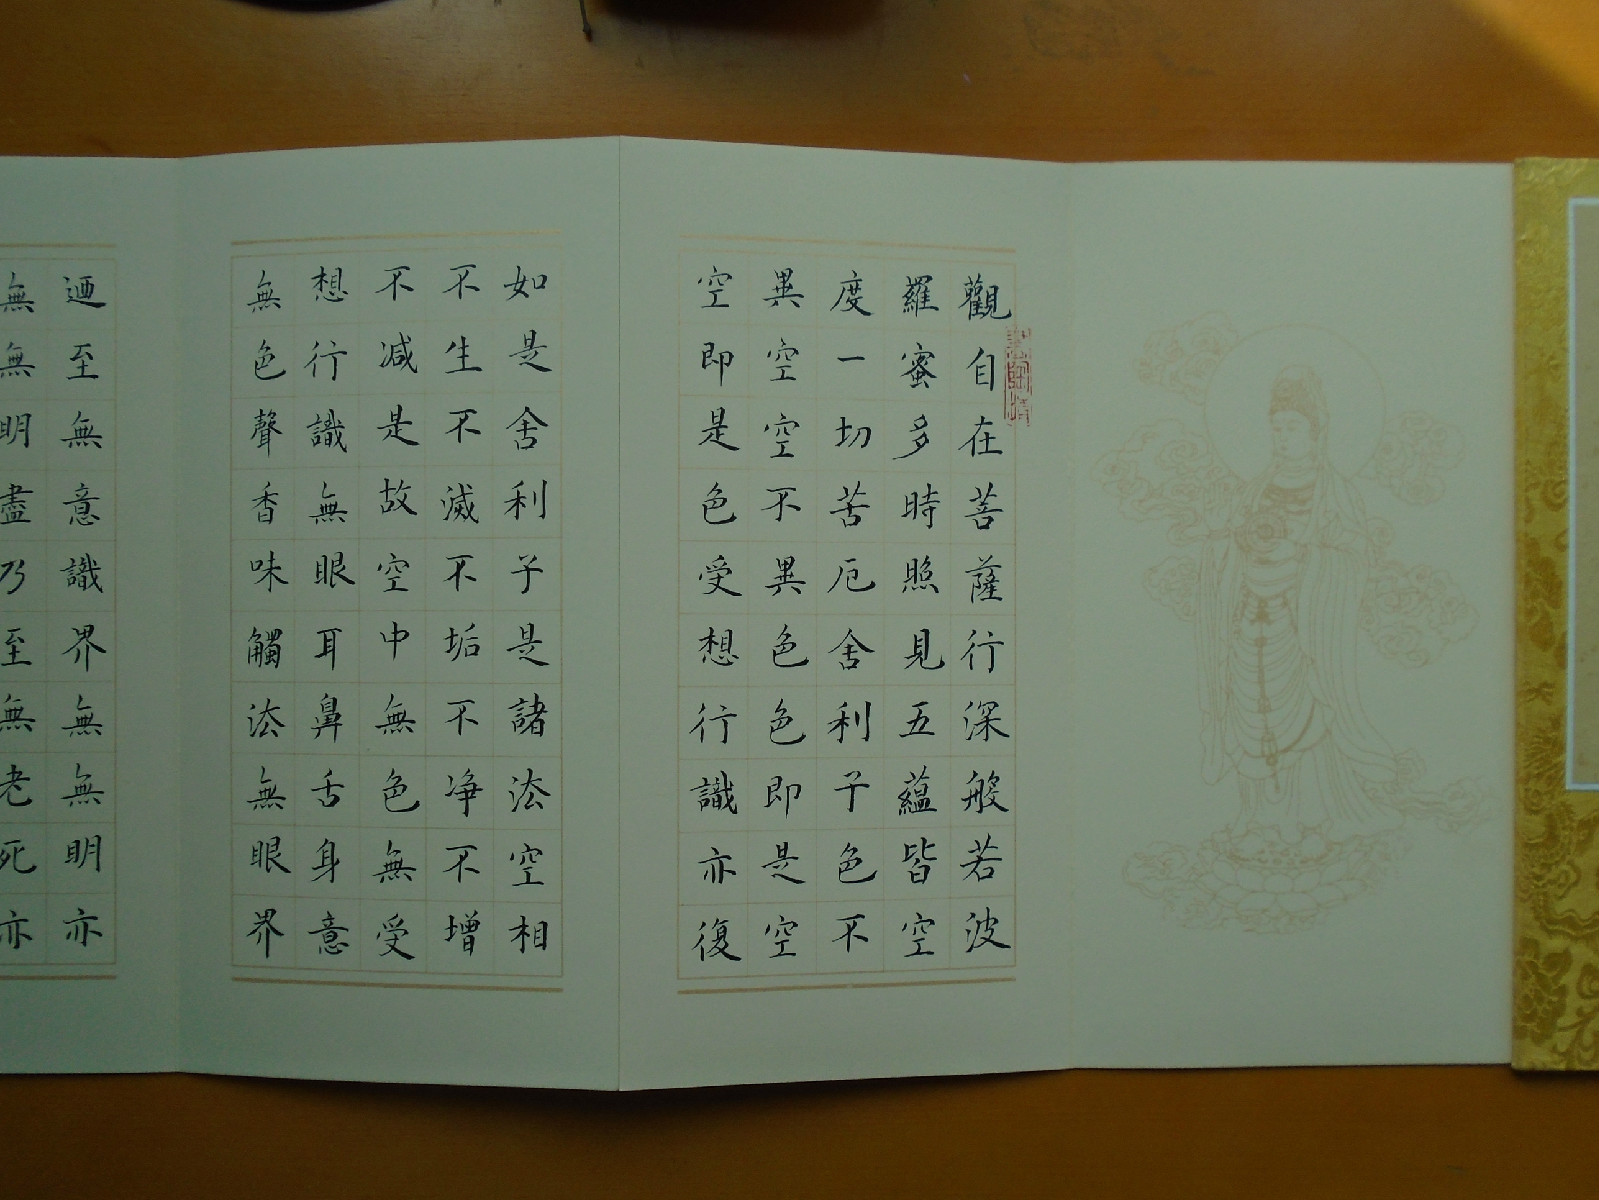 觀自在菩薩行深般若波
羅蜜多時照見五蘊皆空
度一切苦厄舍利子色不
異空空不異色色即是空
空即是色受想行識亦復
如是舍利子是諸法空相
不生不滅不垢不净不增
不减是故空中無色無受
想行識無眼耳鼻舌身意
無色聲香味觸法無眼界
迺至無意識界無無明亦
無無明盡乃至無老死亦